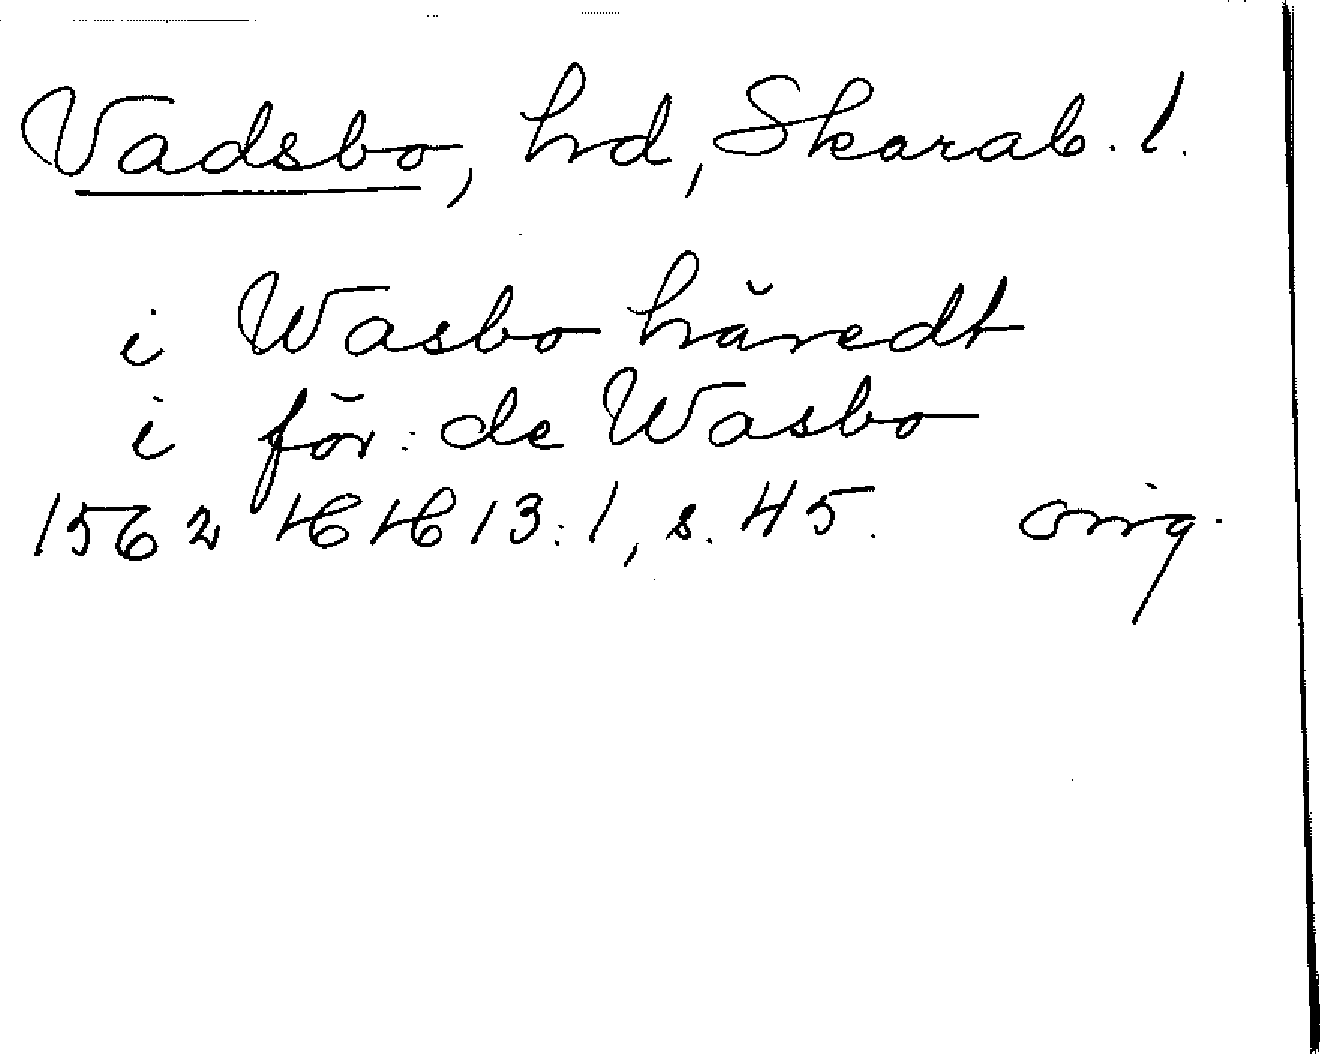 Vadsbo, hd, Skarab. l.
i Wasbo häredt
i för: de Wasbo
1562 HH 13:1, s. 45. orig.